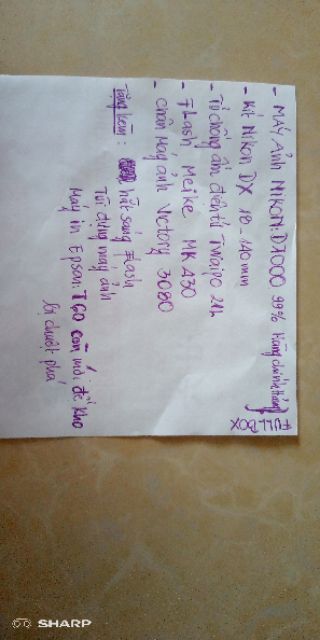 - MÁY ẢNH NIKON: D7000 99% hàng chính hãng
FULL BOX
- Kit Nikon DX 18-140mm
- Tủ chống ẩm điện tử Twaipo 21L
- Flash Meike MK 430
- Chân máy ảnh Victory 3080
Tặng kèm: hắt sáng Flash
Túi đựng máy ảnh
Máy in Epson: T60 còn mới, để kho
bị chuột phá
SHARP